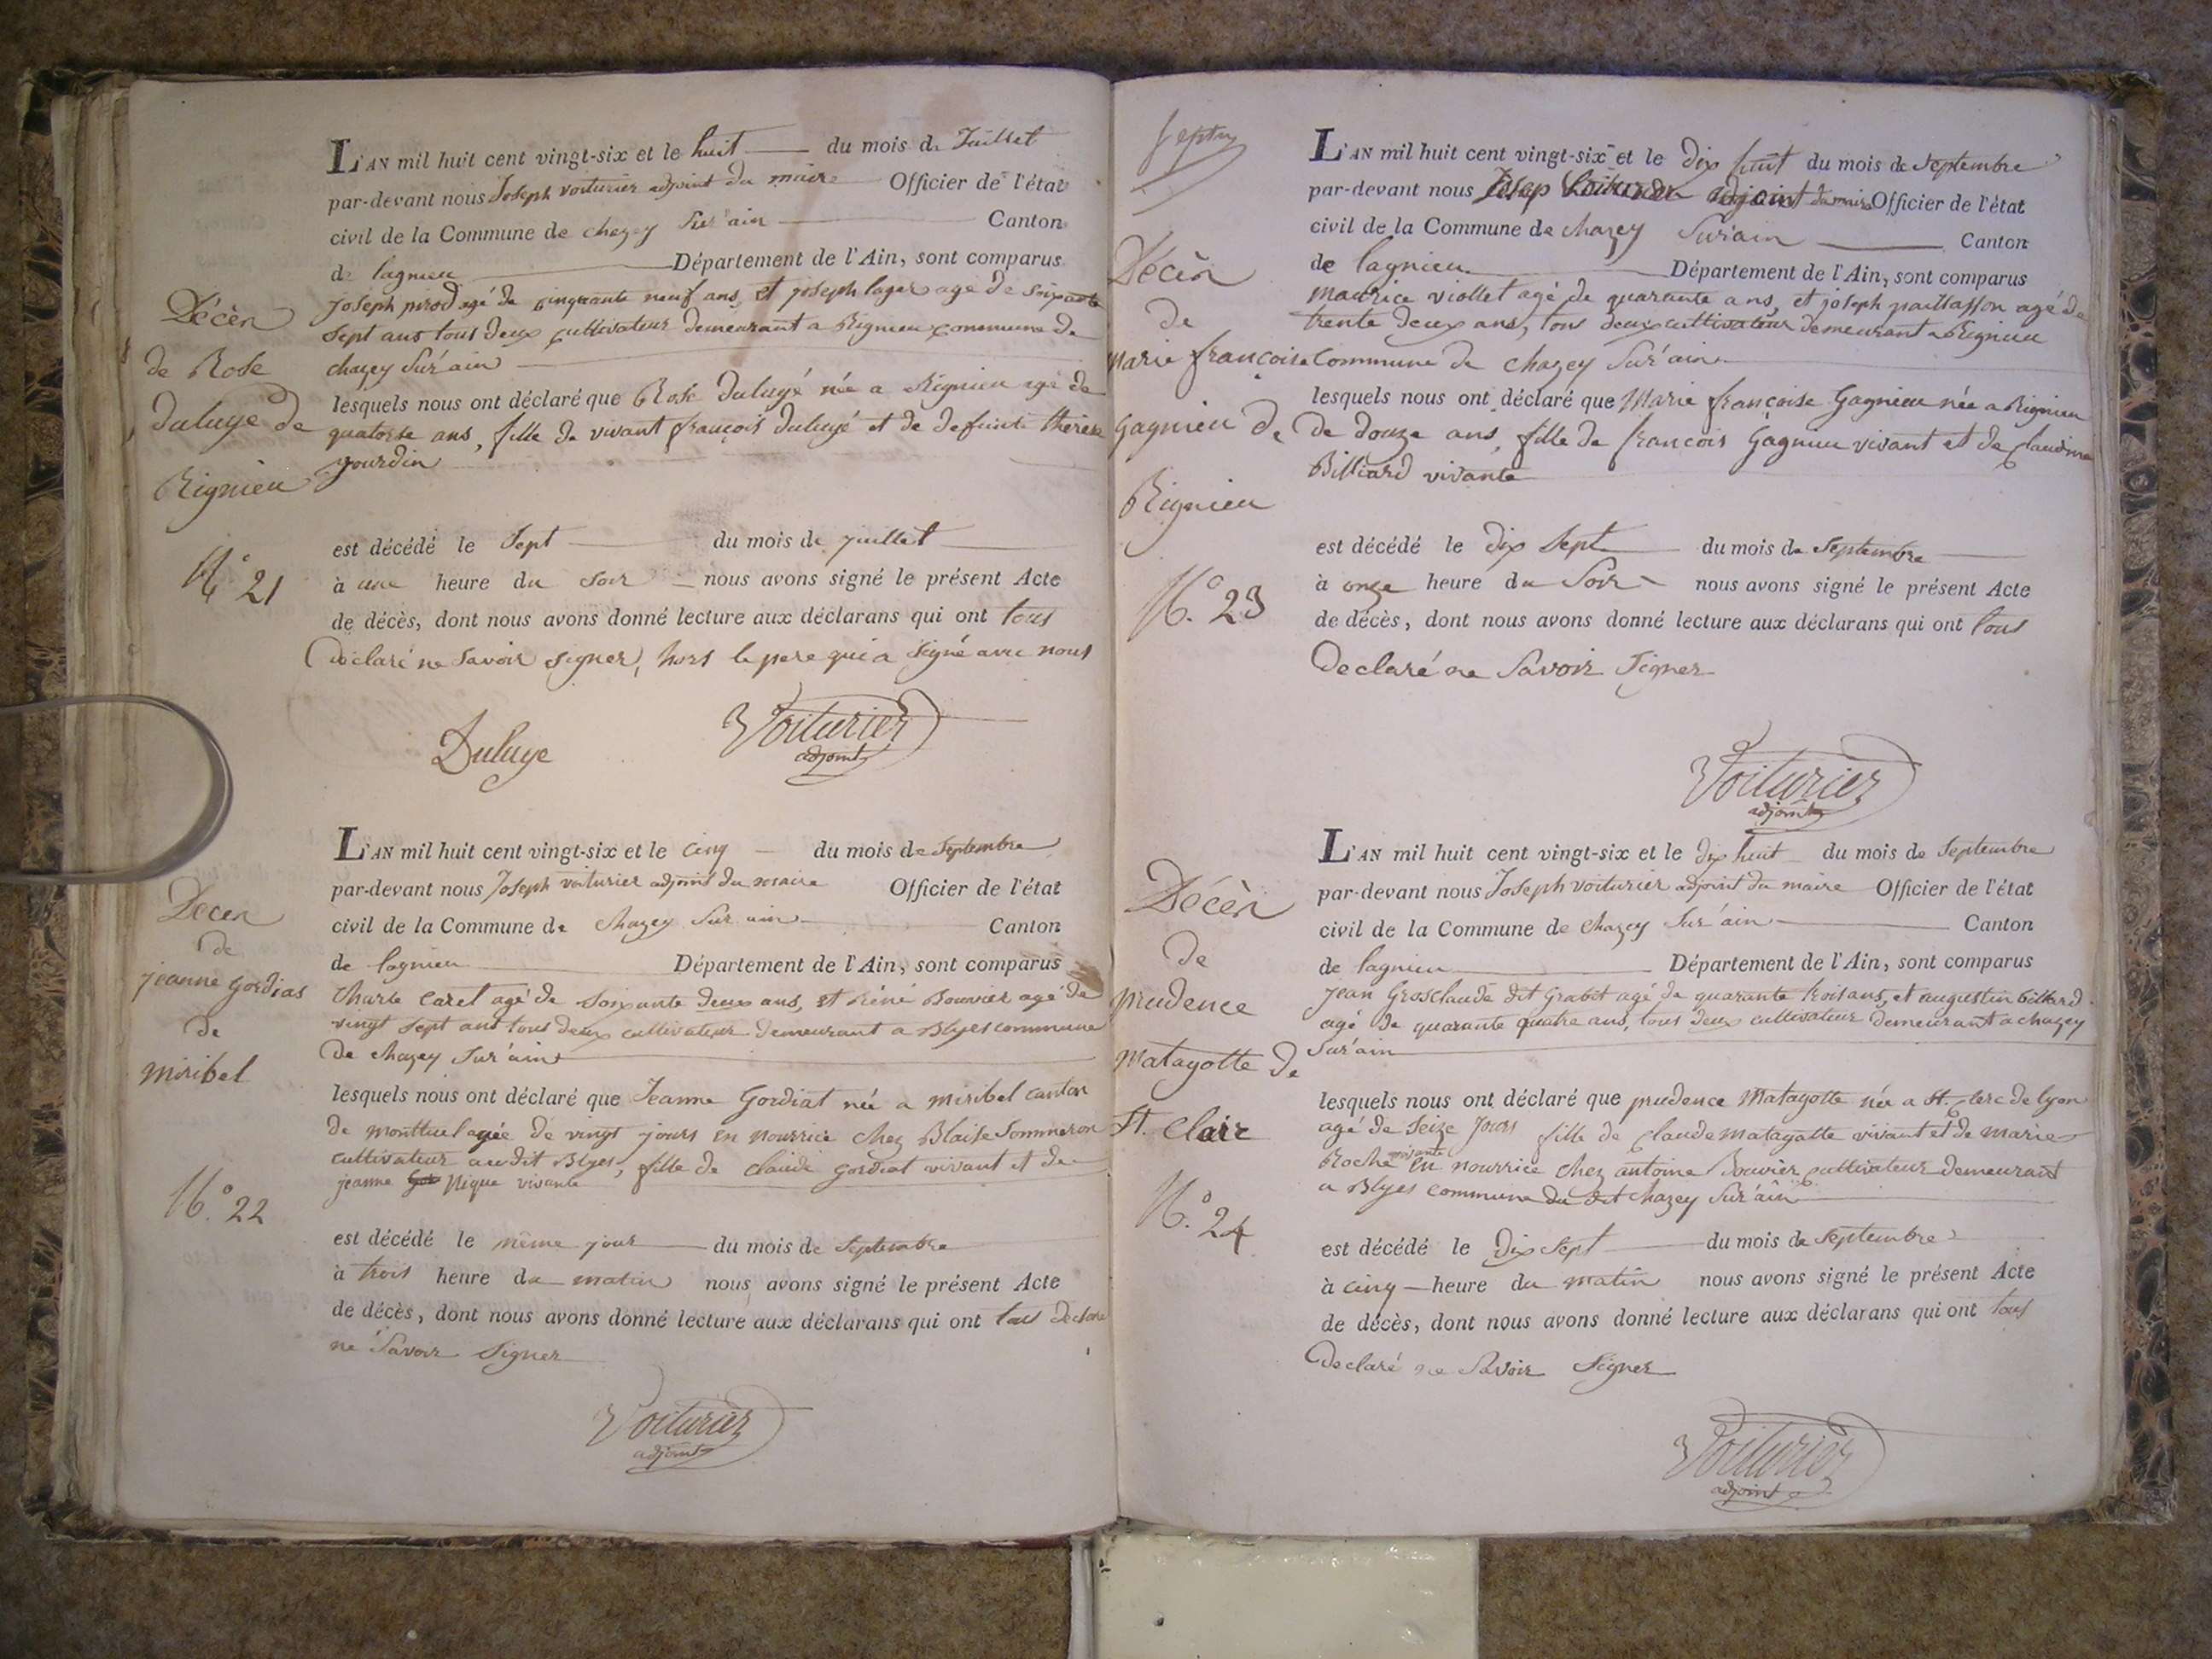 L'AN mil huit cent vingt-six et le huit du mois de Juillet
par-devant nous Joseph voiturier adjoint du maire Officier de l'état
civil de la Commune de chazey Sur'ain Canton
de lagnieu Département de l'Ain, sont comparus
Joseph pirod agé de cinquante neuf ans, et joseph lager agé de soixante
sept ans tous deux cultivateur demeurant a Rignieu commune de
chazey Sur'ain
Décèn
de Rose
Duluye de
Rignieu
lesquels nous ont déclaré que Rose Duluyé née a Rignieu agé de
quatorse ans, fille de vivant françois Duluyé et de defeinte therese
gourdin
N.° 21
est décédé le Sept du mois de juillet
à une heure du soir nous avons signé le présent Acte
de décès, dont nous avons donné lecture aux déclarans qui ont tous
declaré ne Savoir signer, hors le pere qui a Signé avec nous
Duluye
Voiturier
adjoint
L'AN mil huit cent vingt-six et le cinq du mois de Septembre
par-devant nous Joseph voiturier adjoint du maire Officier de l'état
civil de la Commune de Chazey Sur ain Canton
de lagnieu Département de l'Ain, sont comparus
Charle Caret agé de Soixante deux ans, et réné Bouvier agé de
vingt Sept ans tous deux cultivateur demeurant a Blyes commune
de chazey Sur'ain
Décen
de
jeanne Gordias
de
miribel
lesquels nous ont déclaré que Jeanne Gordiat née a miribel canton
de montluel agée de vingt jours en nourrice chez Blaise Sommeron
cultivateur audit Blyes, fille de claude gordiat vivant et de
jeanne pique vivante
N.° 22
est décédé le même jour du mois de Septembre
à trois heure du matin nous avons signé le présent Acte
de décès, dont nous avons donné lecture aux déclarans qui ont tous declaré
ne Savoir Signer
Voiturier
adjoint
Septre
L'AN mil huit cent vingt-six et le dix huit du mois de Septembre
par-devant nous Josep Voiturier adjoint du maire Officier de l'état
civil de la Commune de Chazey Sur'ain Canton
de lagnieu Département de l'Ain, sont comparus
maurice viollet agé de quarante ans, et joseph paillasson agé de
trente deux ans, tous deux cultivateur demeurant a Rignieu
commune de chazey Sur'ain
Décèn
de
marie françoise
gagnieu de
Rignieu
lesquels nous ont déclaré que Marie françoise Gagnieu née a Rignieu
de douze ans, fille de francois Gagnieu vivant et de claudine
Billiard vivante
N.° 23
est décédé le dix Sept du mois de Septembre
à onze heure du Soir nous avons signé le présent Acte
de décès, dont nous avons donné lecture aux déclarans qui ont tous
declaré ne Savoir Signer
Voiturier
adjoint
L'AN mil huit cent vingt-six et le dix huit du mois de Septembre
par-devant nous Joseph voiturier adjoint du maire Officier de l'état
civil de la Commune de Chazey Sur'ain Canton
de lagnieu Département de l'Ain, sont comparus
jean Grosclaude dit Grabit agé de quarante trois ans, et augustin billard
agé de quarante quatre ans, tous deux cultivateur demeurant a chazey
Sur'ain
Décèn
de
prudence
Matayotte de
St. Clair
lesquels nous ont déclaré que prudence Matayotte née a St. clerc de lyon
agé de Seize Jours fille de claude matayotte vivant et de marie
Roche vivante en nourrice chez antoine Bouvier cultivateur demeurant
a Blyes commune du dit chazey Sur'ain
N.° 24
est décédé le dix Sept du mois de Septembre
à cinq heure du matin nous avons signé le présent Acte
de décès, dont nous avons donné lecture aux déclarans qui ont tous
declaré ne Savoir Signer
Voiturier
adjoint